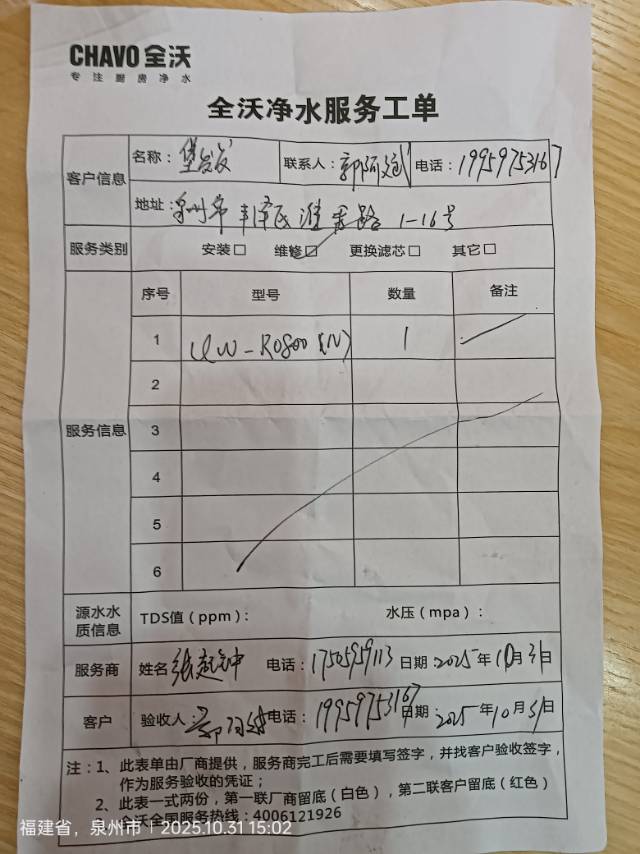 CHAVO 全沃
专注厨房净水
全沃净水服务工单
客户信息 名称： 联系人：郭 电话：19959753167
地址：泉州市丰泽区 路 1-16号
服务类别 安装□ 维修☑ 更换滤芯□ 其它□
服务信息 序号 型号 数量 备注
1 UW-RO800(N) 1
2
3
4
5
6
源水水质信息 TDS值（ppm）： 水压（mpa）：
服务商 姓名 张 电话：17505959113 日期：2025年10月31日
客户 验收人：郭 电话：19959753167 日期：2025年10月31日
注：1、此表单由厂商提供，服务商完工后需要填写签字，并找客户验收签字，
作为服务验收的凭证；
2、此表一式两份，第一联厂商留底（白色），第二联客户留底（红色）
全沃全国服务热线：4006121926
福建省，泉州市 | 2025.10.31 15:02